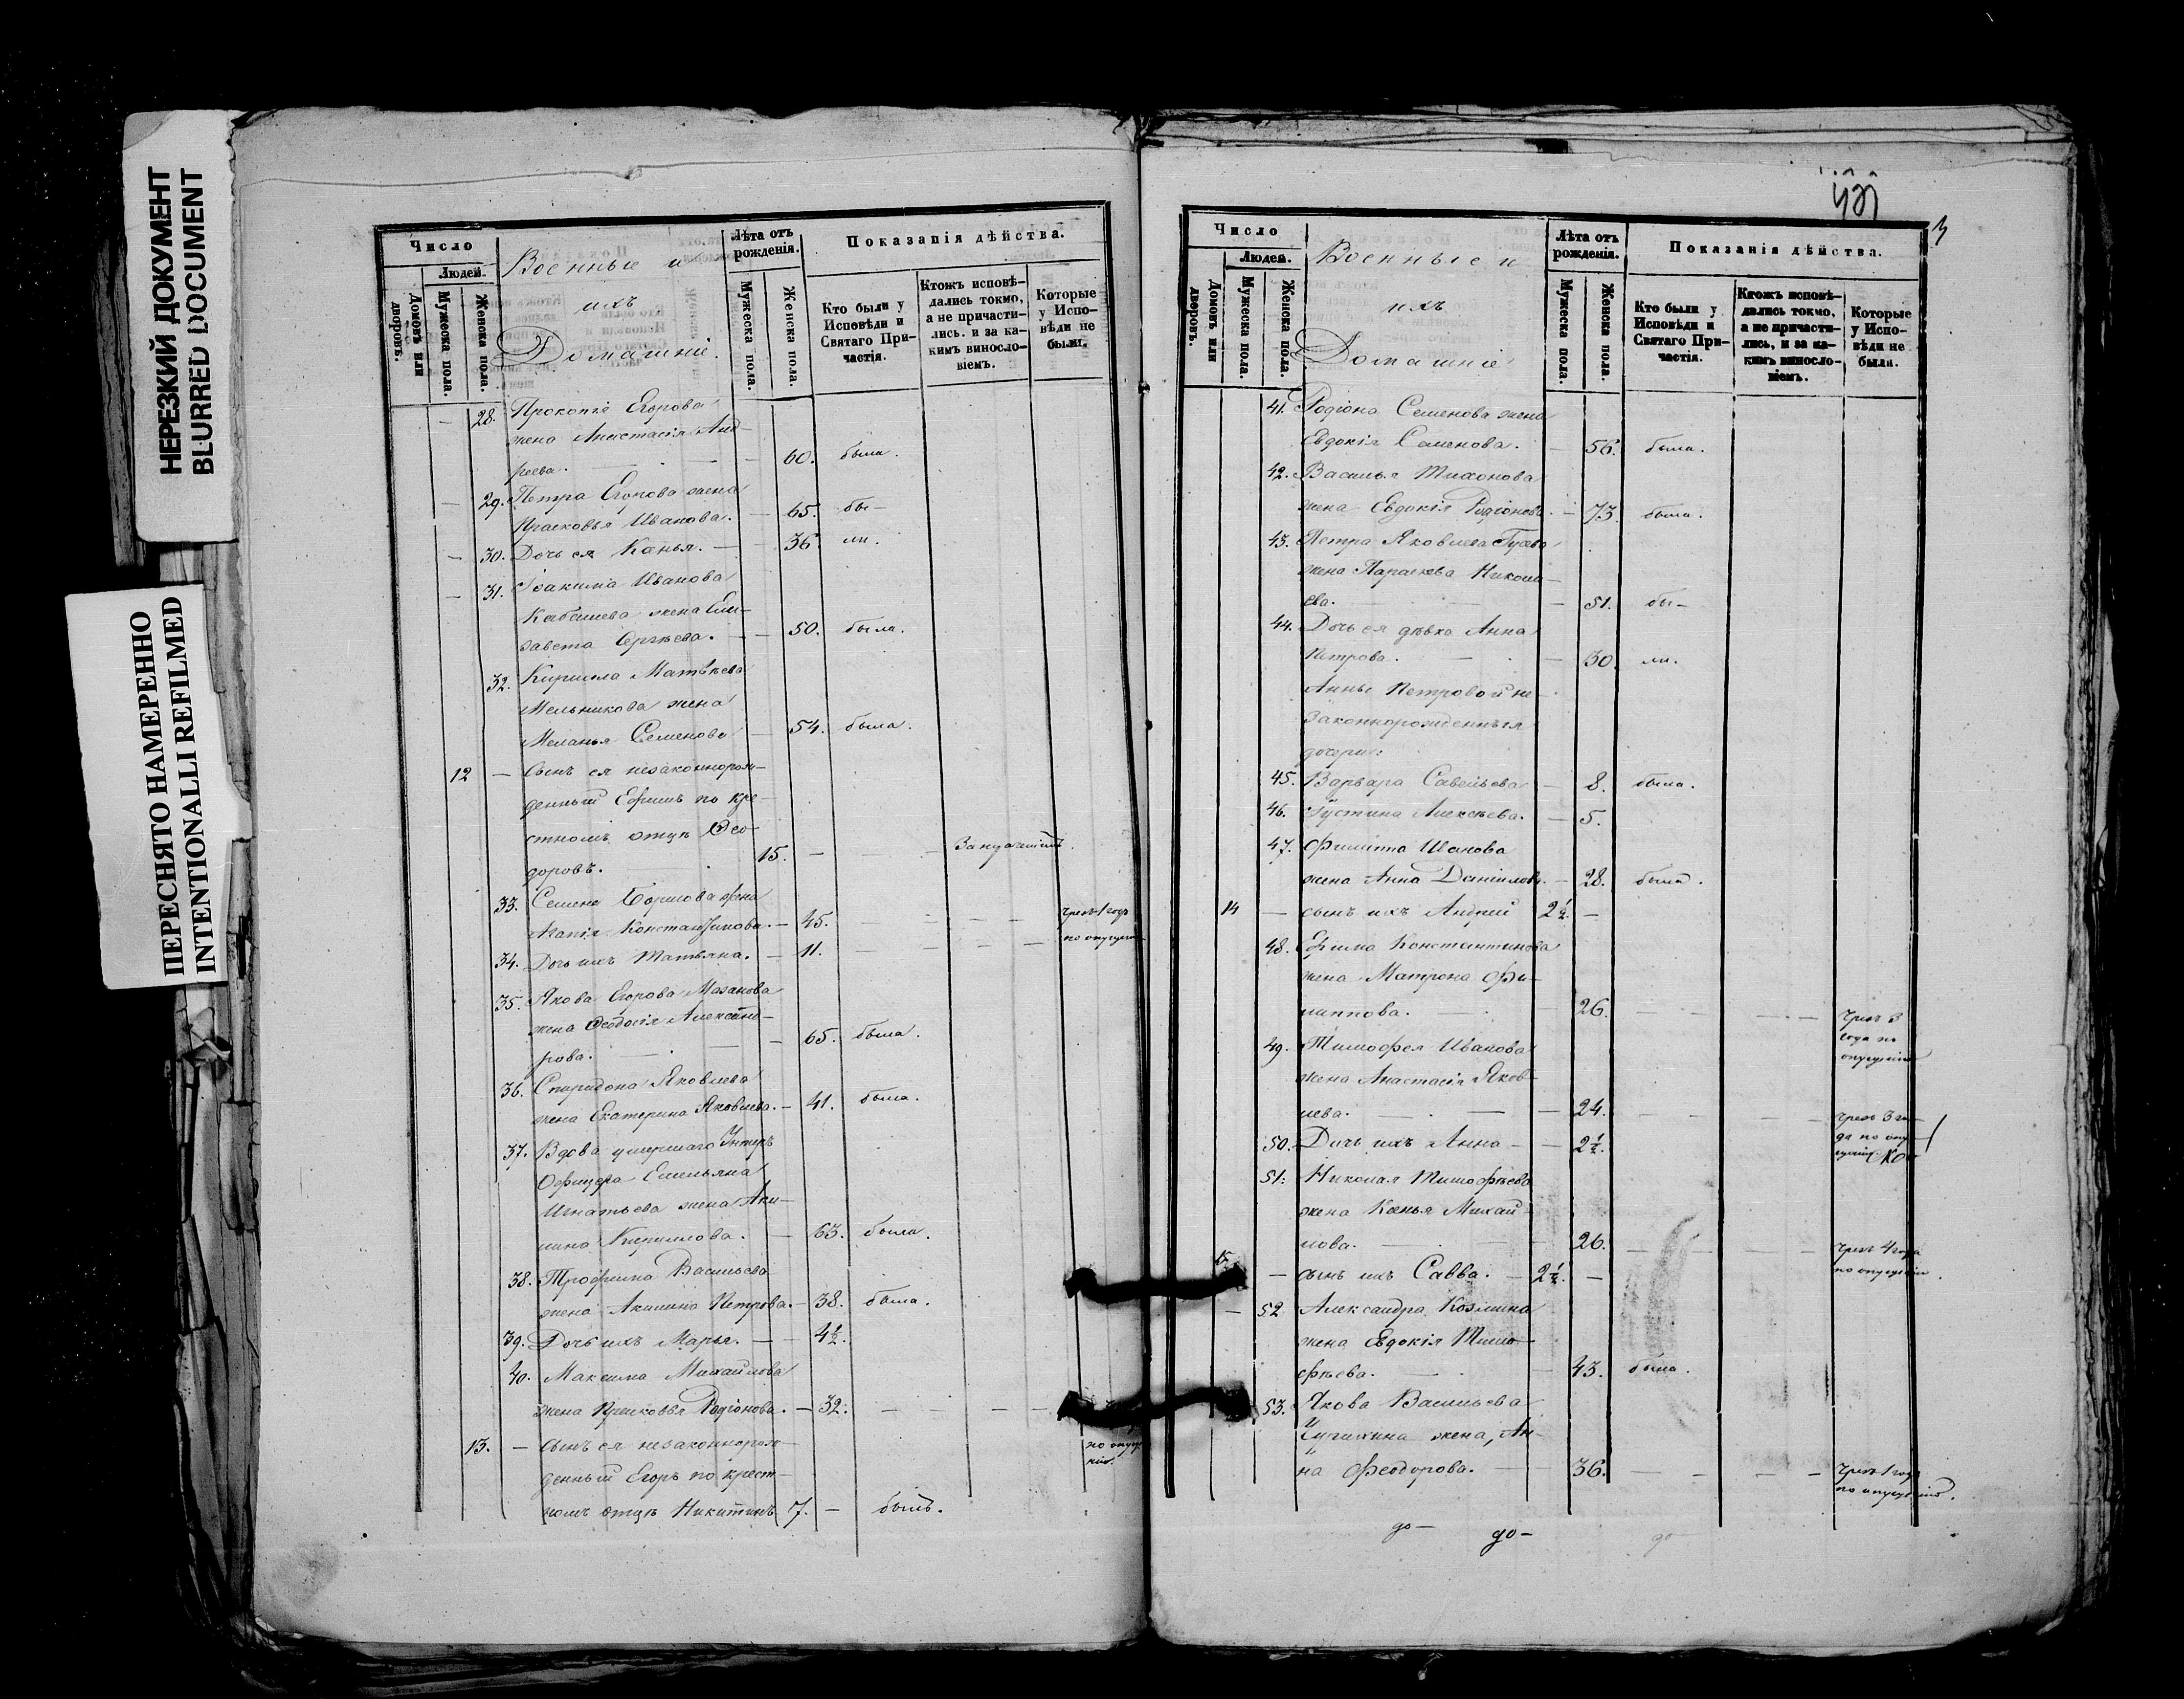 НЕРЕЗКИЙ ДОКУМЕНТ
BLURRED DOCUMENT
ПЕРЕСНЯТО НАМЕРЕННО
INTENTIONALLI REFILMED
Число
Людей.
Домовъ или дворовъ.
Мужеска пола.
Женска пола.
Военные и
ихъ
Домашніе.
Лѣта отъ рожденія.
Мужеска пола.
Женска пола.
Показанія дѣйства.
Кто были у Исповѣди и Святаго Причастія.
Ктожъ исповѣдались токмо, а не причастились. и за какимъ винословіемъ.
Которые у Исповѣди не были.
— 28. Прокопія Егорова
жена Анастасія Анд-
реева. — — 60. была.
— 29. Петра Егорова жена
Прасковья Иванова. — 65. бы-
— 30. Дочь ея Ксенья. — 36. ли.
— 31. Іоакима Иванова
жена Ели-
завета Сергѣева. — 50. была.
32. Кирилла Матвѣева
Мельникова жена
Меланья Семенова — 54. была.
12 — Сынъ ея незаконнорож-
денный Ефимъ по кре-
стномъ отцѣ Ѳео-
доровъ. 15. —
33. Семена Борисова жена
Константинова. — 45. — — — чрезъ 1 годъ
34. Дочь ихъ Татьяна. — 11. — — — — по опущен
35. Якова Егорова Мазанова
жена Ѳеодосія Александ-
рова. — — 65. была.
36. Спиридона Яковлева
жена Екатерина Яковлева. — 41. была.
37. Вдова умершаго Унтеръ
Офицера Емельяна
Игнатьева жена Аку-
лина Кириллова. — 63. была.
38. Трофима Васильева
жена Акулина Петрова. — 38. была.
39. Дочь ихъ Марья. — — 4½.
40. Максима Михайлова
жена Прасковья Родіонова. — 32. — — — —
13. — Сынъ ея незаконнорож-
денный Егоръ по крест-
номъ отцѣ Никитинъ 7. — былъ.
Число
Людей.
Домовъ или дворовъ.
Мужеска пола.
Женска пола.
Военные и
ихъ
Домашніе
Лѣта отъ рожденія.
Мужеска пола.
Женска пола.
Показанія дѣйства.
Кто были у Исповѣди и Святаго Причастія.
Ктожъ исповѣдались токмо, а не причастились, и за какимъ винословіемъ.
Которые у Исповѣди не были.
41. Родіона Семенова жена
Евдокія Семенова. — 56. была.
42. Василья Тихонова
жена Евдокія Родіонова. — 73. была.
43. Петра Яковлева Гусева
жена Параскева Никола-
ева. — — 51. бы-
44. Дочь ея дѣвка Анна
Петрова. — — 30. ли.
Анны Петровой не-
законнорожденныя
дочери:
45. Варвара Савельева — 8. была.
46. Іустина Алексѣева. — 5.
47. Филиппа Иванова
жена Анна Даніилова. — 28. была.
14 — сынъ ихъ Андрей 2½. —
48. Ефима Константинова
жена Матрона Фи-
липпова. — 26. — — — — чрезъ 3
года по
опущенію
49. Тимофея Иванова
жена Анастасія Яков-
лева. — — — 24. — — — — чрезъ 3 го-
да по опу-
50. Дочь ихъ Анна — — 2½.
51. Николая Тимофѣева
жена Ксенья Михай-
лова. — — 26. — — — — чрезъ 4 года
по опущенію
15. — сынъ ихъ Савва. — 2½. —
— 52. Александра Козмина
жена Евдокія Тимо-
фѣева. — — 43. была.
53. Якова Васильева
жена, Ан-
на Феодорова. — 36. — — — — чрезъ 1 годъ
по опущенію.
до— до— до—